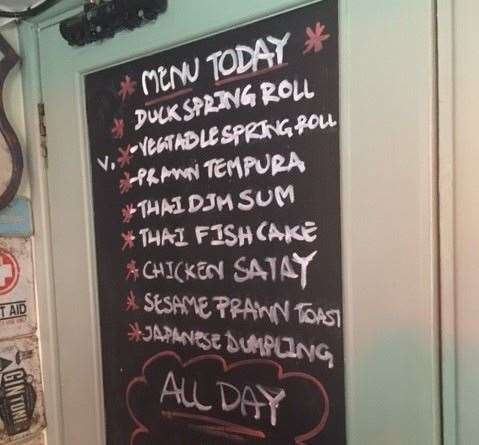 * MENU TODAY *
DUCK SPRING ROLL
V. *-VEGTABLE SPRING ROLL
*-PRAWN TEMPURA
*-THAI DIM SUM
* THAI FISH CAKE
* CHICKEN SATAY
* SESAME PRAWN TOAST
*JAPANESE DUMPLING
ALL DAY
T AID
GIN